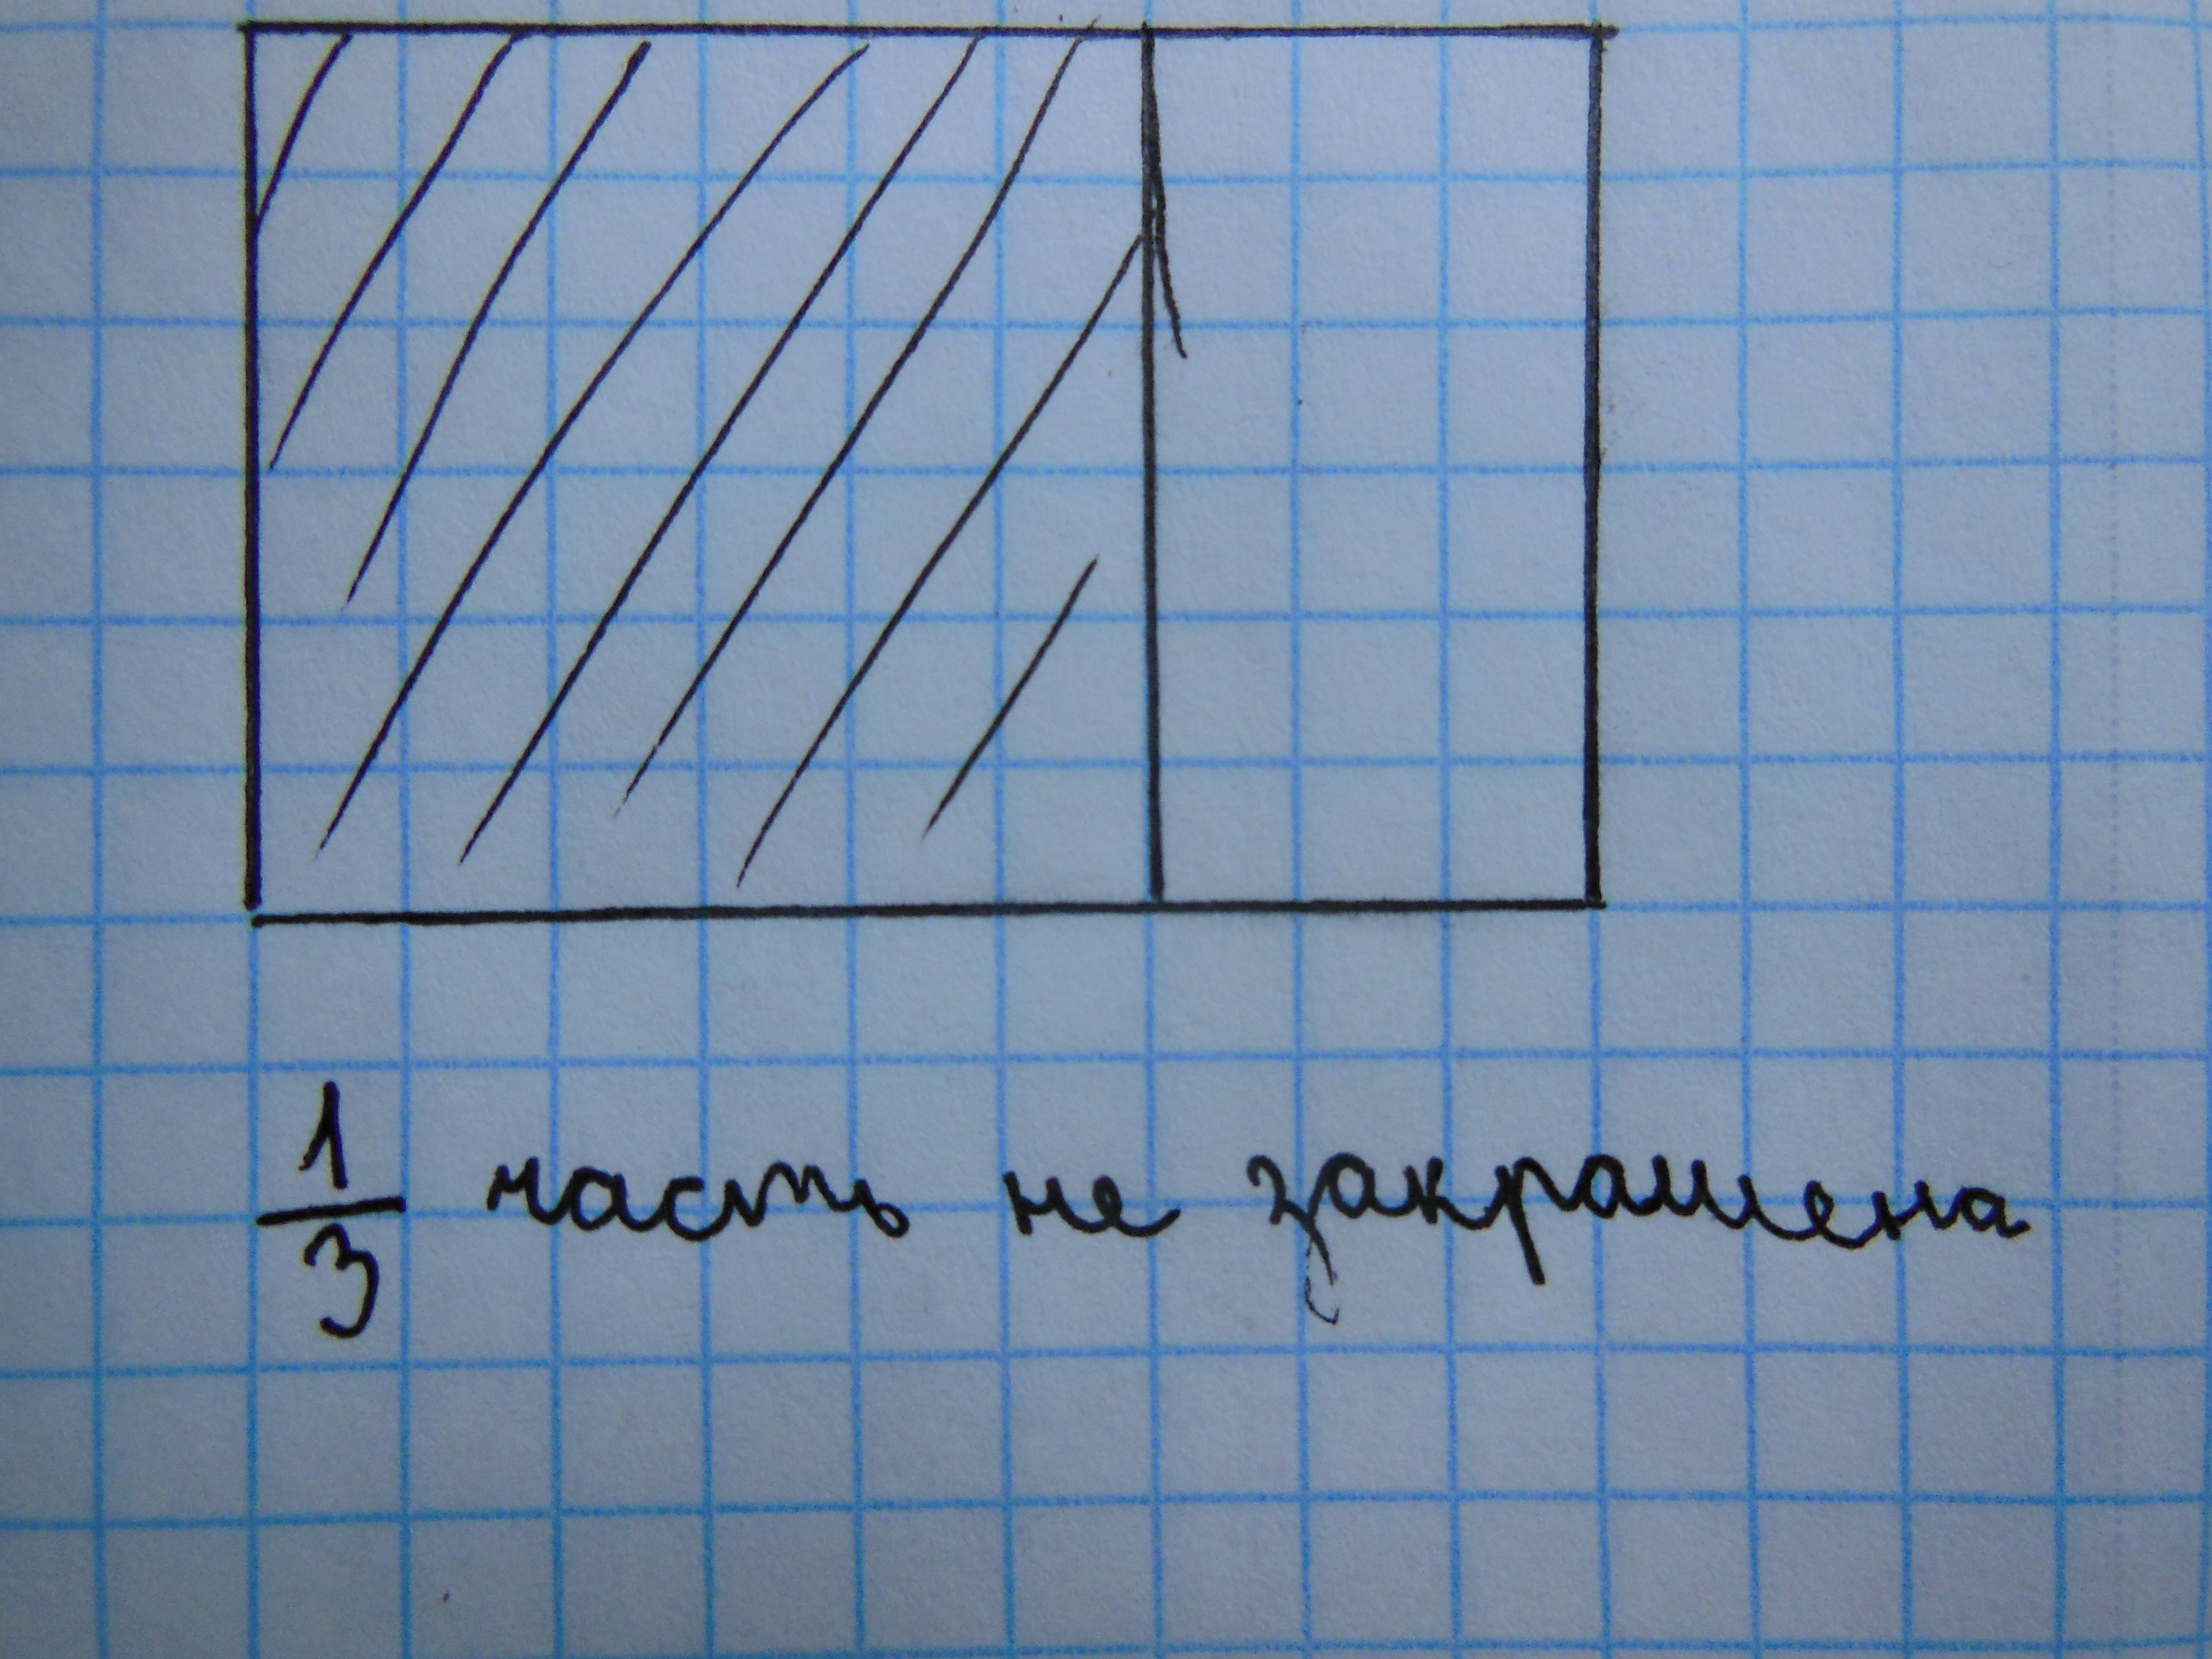 1/3 часть не закрашена